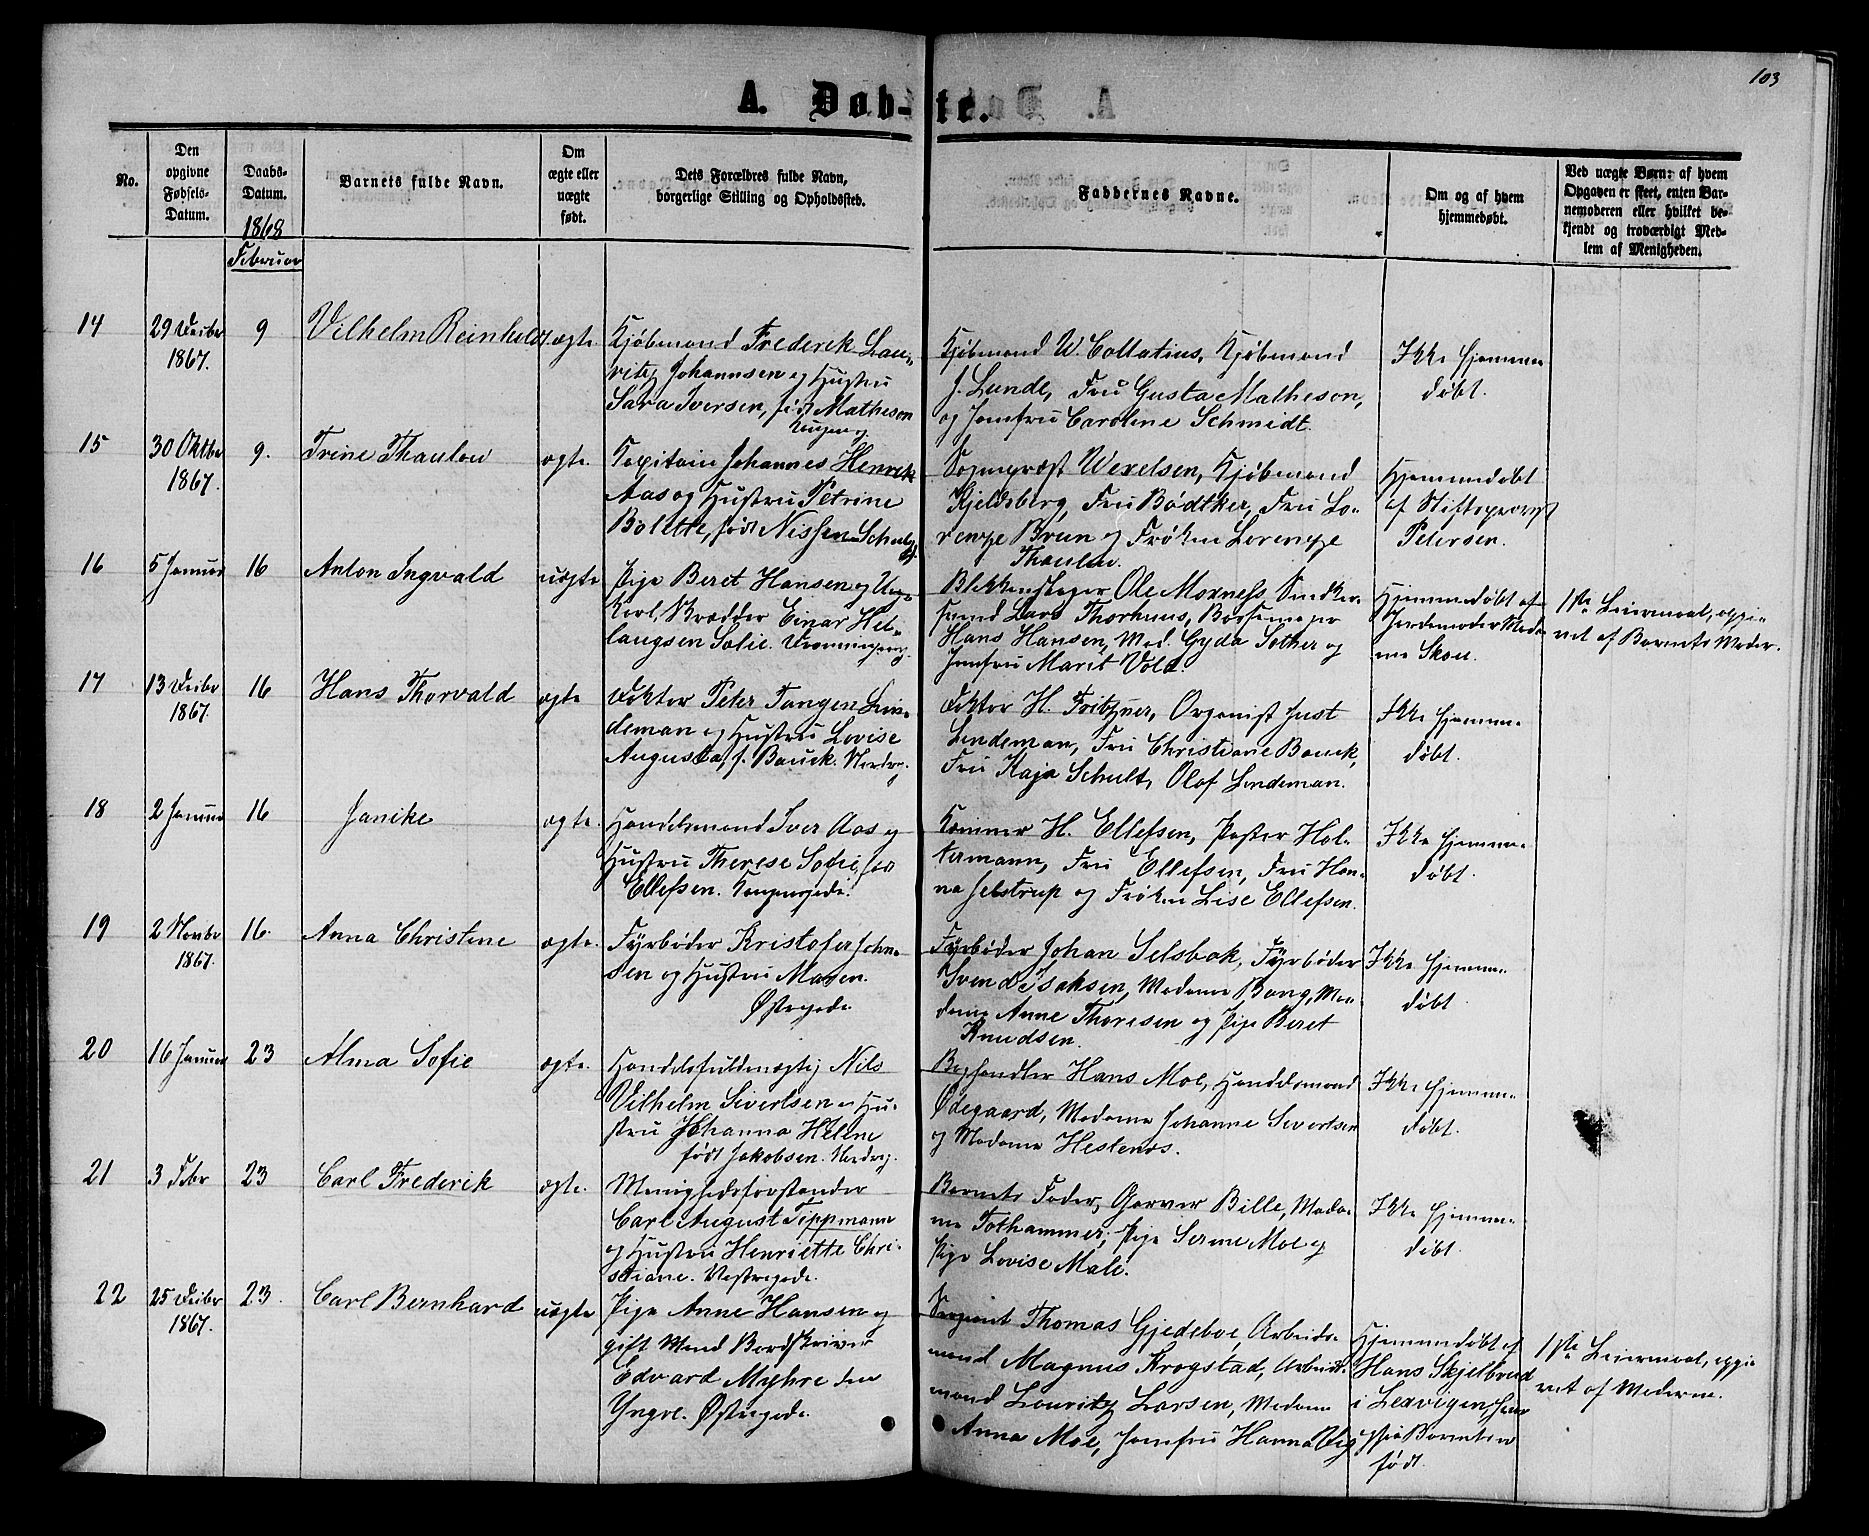 103
A. Døb-te.
No.
Den opgivne Fødsels-Datum.
Daabs-Datum.
Barnets fulde Navn.
Om ægte eller uægte født.
Dets Forældres fulde Navn, borgerlige Stilling og Opholdssted.
Faddernes Navne.
Om og af hvem hjemmedøbt.
Ved uægte Børn: af hvem Opgaven er skeet, enten Barnemoderen eller hvilket bekjendt og troværdigt Medlem af Menigheden.
1868
Februar
14
29 Decbr
1867.
9
Vilhelm Reinholdt
ægte
Kjøbmand Frederik Lau-
ritz Johannsen og Hustru
Sara Iversen, født Matheson
Kjøbmand W. Collatius, Kjøbmand
J. Lunde, Fru Gusta Matheson,
og Jomfru Caroline Schmidt.
Ikke hjemme-
døbt.
15
30 Oktbr
1867.
9.
Trine Thaulow
ægte.
Kapitain Johannes Henrik
Aas og Hustru Petrine
Bolette, født Nissen
Sognepræst Wexelsen, Kjøbmand
Kjeldsberg, Fru Bødtker, Fru Lo-
rentze Brun og Frøken Lorentze
Thaulow.
Hjemmedøbt
af Stiftsprovst
Petersen.
16
5 Januar
16
Anton Ingvald
uægte
Pige Beret Hansen og Ung-
karl, Brædder Einar Hel-
laugsen Solie.
Blikkenslager Ole Moxness, Snedker-
svend Lars Thorhuus,
Hans Hansen, Mad. Gyda Sother og
Jomfru Marit Vold.
Hjemmedøbt af
Jordemoder Mada-
me Skou.
1ste Leiermaal, opgi-
vet af Barnets Moder.
17
13 Decbr
1867.
16
Hans Thorvald
ægte
Doktor Peter Tangen Lin-
deman og Hustru Lovise
Augusta, f. Bauck.
Doktor H. Fritzner, Organist Just
Lindeman, Fru Christiane Bauck,
Fru Kaja Schult, Olof Lindeman.
Ikke hjemme-
døbt.
18
2 Januar
16
Janike
ægte.
Handelsmand Iver Aas og
Hustru Therese Sofie, født
Ellefsen. Kongensgade.
Kæmner H. Ellefsen, Pastor Hol-
termann, Fru Ellefsen, Fru Han-
na Jelstrup og Frøken Lise Ellefsen.
Ikke hjemme-
døbt.
19
2 Novbr
1867.
16.
Anna Christine
ægte.
Fyrbøder Kristofer John-
sen og Hustru Maren.
Østregade
Fyrbøder Johan Selsbak, Fyrbøder
Svend Isaksen, Madame Bang, Ma-
dame Anne Thoresen og Pige Beret
Knudsen.
Ikke hjemme-
døbt.
20
16 Januar
23
Alma Sofie
ægte.
Handelsfuldmægtig Nils
Vilhelm Sivertsen og Hu-
stru Johanna Heline
født Jakobsen.
Boghandler Hans Moe, Handelsmand
Ødegaard, Madame Johanne Sivertsen
og Madame Hestenæs.
Ikke hjemme-
døbt.
21
3 Febr
23
Carl Frederik
ægte.
Menighedsforstander
Carl August Tippmann
og Hustru Henriette Chri-
stiane. Vestregade.
Barnets Fader, Garver Bille, Mada-
me Tothammer, Pige Serine Moe og
Pige Lovise Male.
Ikke hjemme-
døbt.
22
25 Decbr
1867.
23.
Carl Bernhard
uægte
Pige Anne Hansen og
gift Mand Bordskriver
Edvard Myhre den
Yngre. Østregade.
Sergeant Thomas Gjedeboe, Arbeids-
mand Magnus Krogstad, Arbeids-
mand Lauritz Larsen, Madame
Anna Moe, Jomfru Hanna
Hjemmedøbt af
Hans Skjelbred
i Lexvigen, hvor
Barnet er
født.
1ste Leiermaal, opgi-
vet af Moderen.